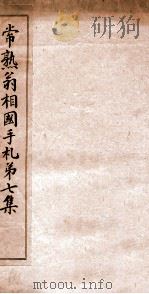 常熟翁相國手札第七集
mtoou.info